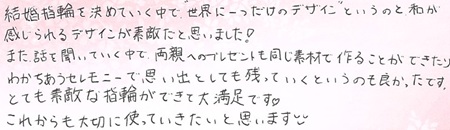 結婚指輪を決めていく中で"世界に一つだけのデザイン"というのと和が
感じられるデザインが素敵だと思いました!
また、話を聞いていく中で、両親へのプレゼントも同じ素材で作ることができたり
わかちあうセレモニーで思い出としても残っていくというのも良かったです。
とても素敵な指輪ができて大満足です♡
これからも大切に使っていきたいと思います♡